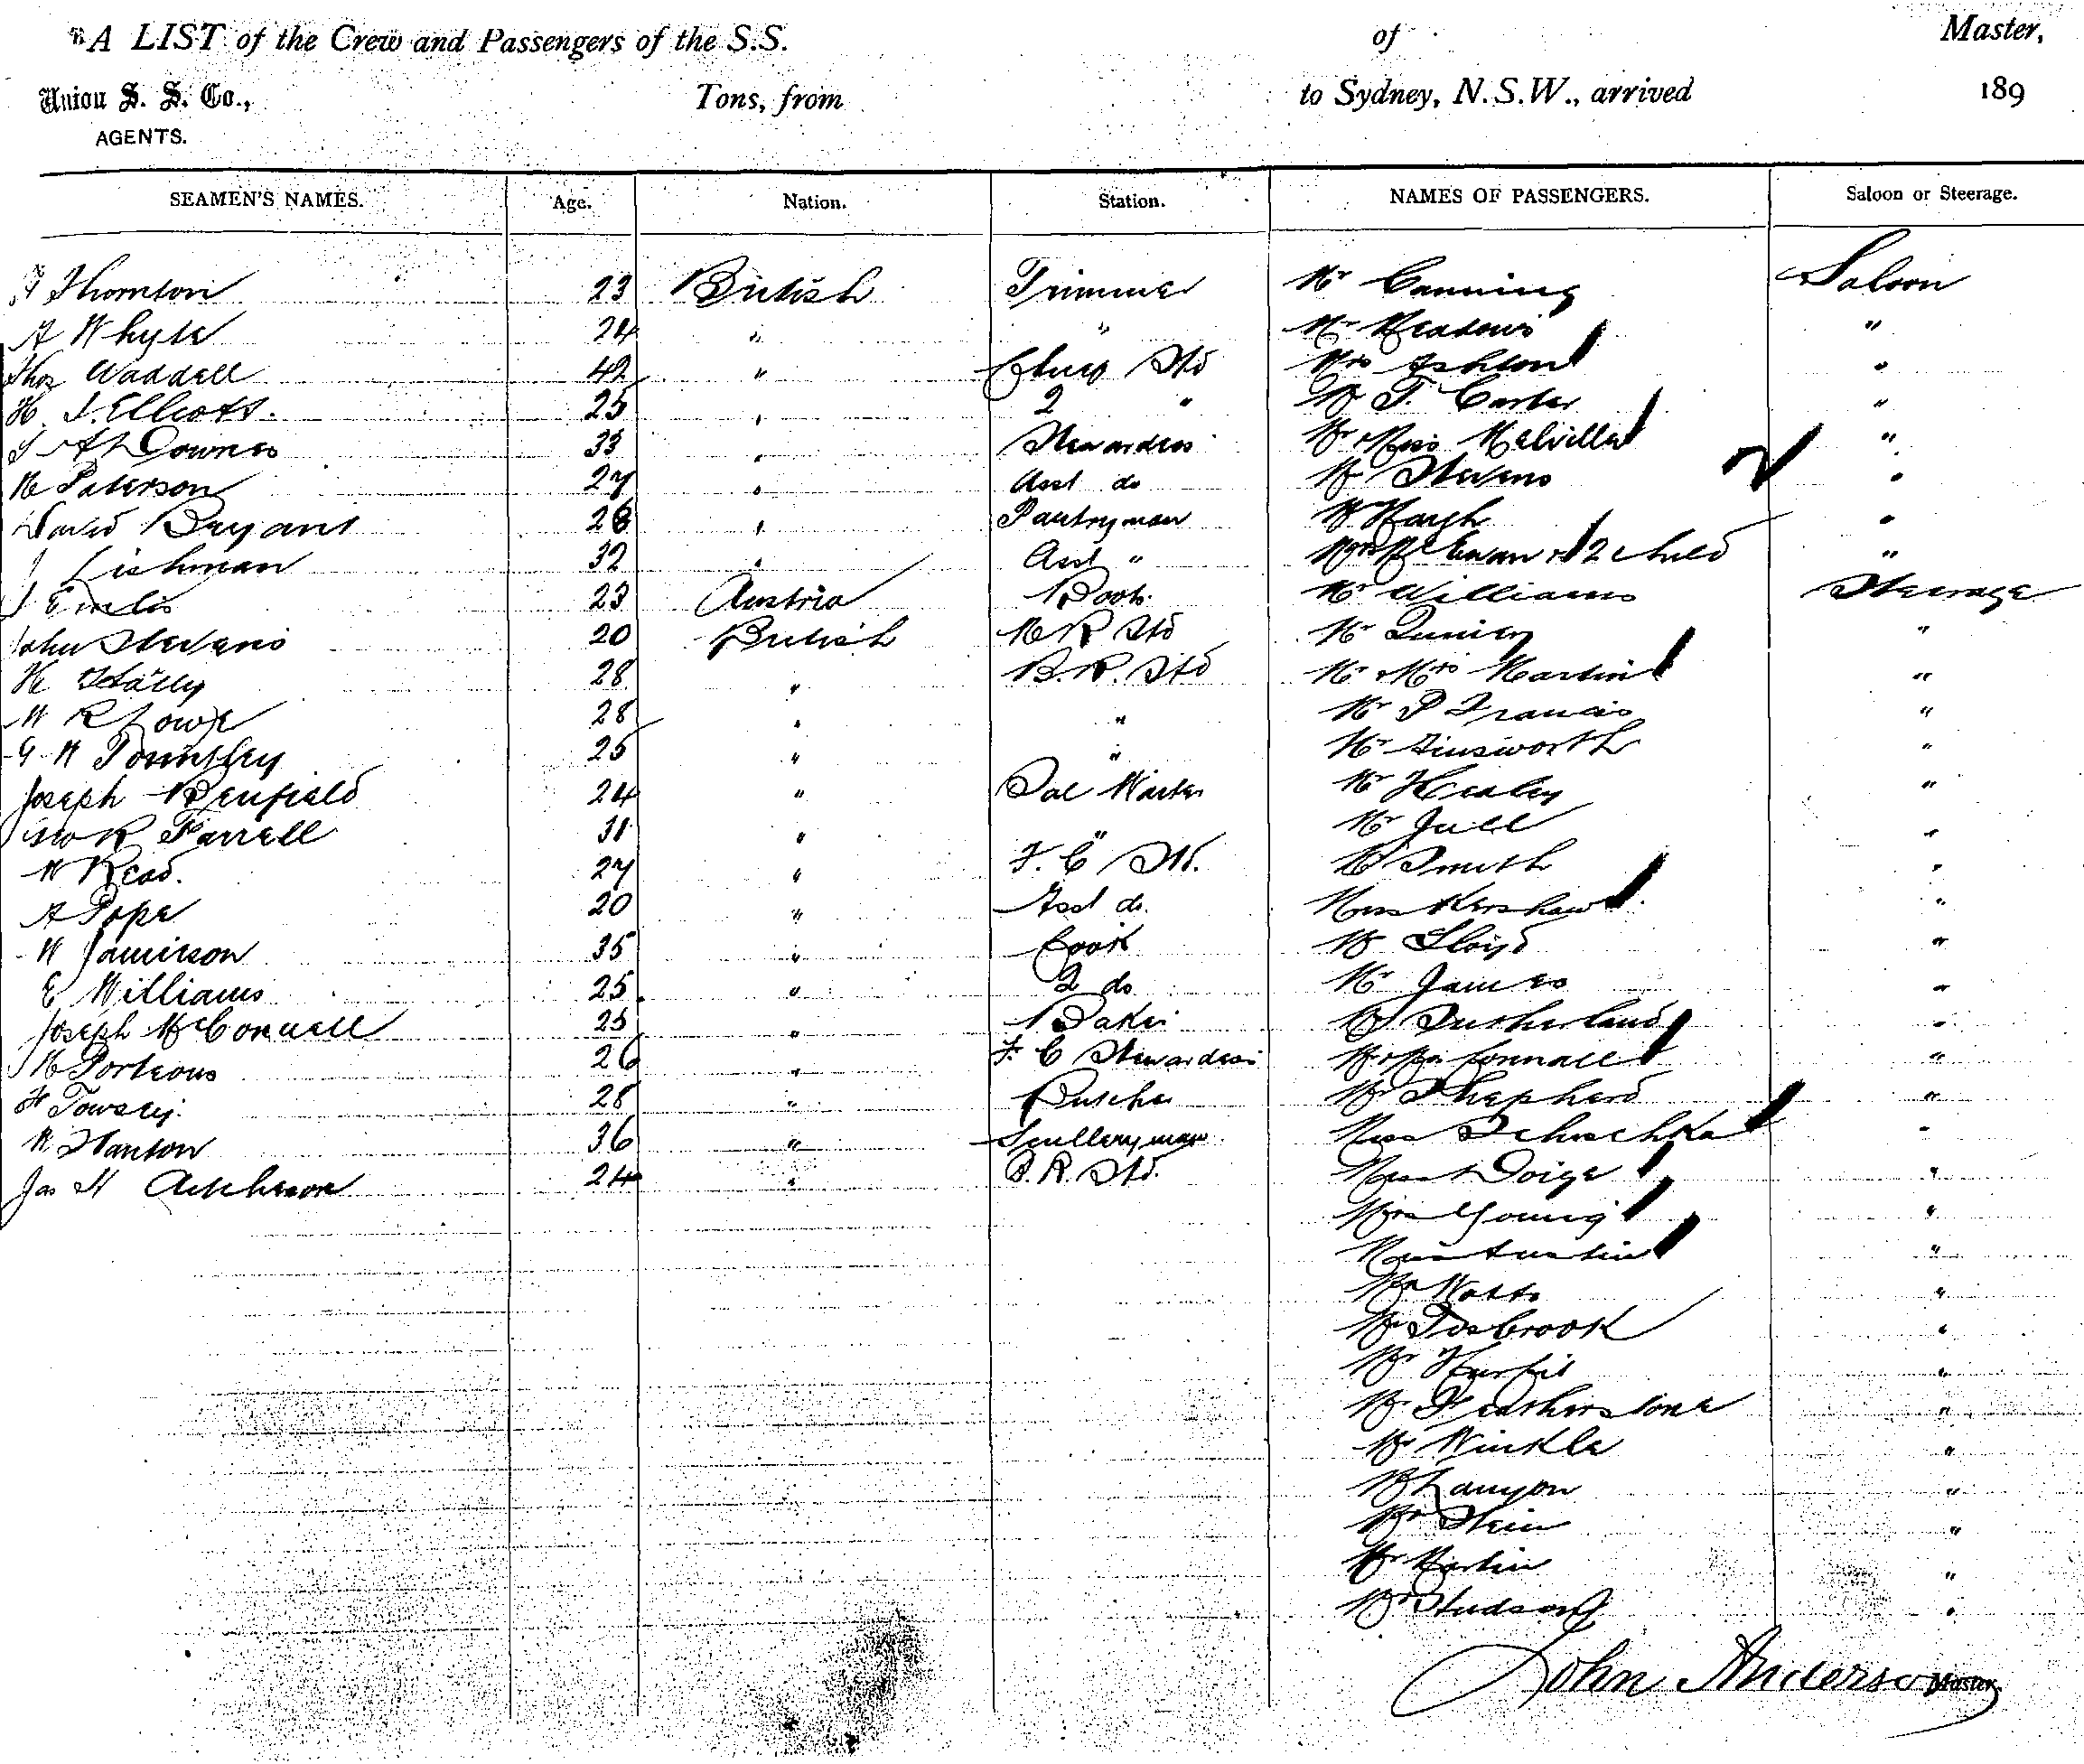 A LIST of the Crew and Passengers of the S.S. of Master,
Union S. S. Co., Tons, from to Sydney, N.S.W., arrived 189
AGENTS.
SEAMEN'S NAMES. Age. Nation. Station. NAMES OF PASSENGERS. Saloon or Steerage.
Thornton 23 British Trimmer Mr Canning Saloon
A Whyte 24 " " Mr Meadows "
Thos Waddell 42 " Chief Std Mrs Ashton "
H J. Elliott. 25 " 2 " Mr T. Carter "
Downes 33 " Stewardess Mr & Miss Melville "
M Paterson 27 " Asst do Mr Stevens "
David Bryant 28 " Pantryman Mr Haigh "
J Lishman 32 " Asst " Mrs McEwan & 2 child "
J 23 Austria Boots. Mr Williams Steerage
John Stevens 20 British M R Std Mr "
H 28 " B.R. Std Mr & Mrs Martin "
W R Lowe 28 " " Mr P Francis "
G W 25 " " Mr Ainsworth "
Joseph Benfield 24 " Sal Waiter Mr Healey "
Geo R Farrell 31 " " Mr Jull "
W Read. 27 " F. C Std. Mr Smith "
A Pope 20 " Asst do. Miss Kershaw "
W Jamieson 35 " Cook Mr Lloyd "
E Williams 25 " 2 do Mr James "
Joseph McConnell 25 " Baker Mr Sutherland "
M Porteous 26 " F. C Stewardess Mr & Mrs Connall "
H Towsey. 28 " Butcher Mr Shepherd "
R Hanton 36 " Sculleryman Miss "
Jas H Aitcheson 24 " B.R. Std. Miss Doige "
Mrs Young "
Miss Austin "
Mr Watts "
Mr "
Mr "
Mr Featherstone "
Mr Winkle "
Mr Lanyon "
Mr Stein "
Mr Martin "
Mr Hudson "
John Anderson Master